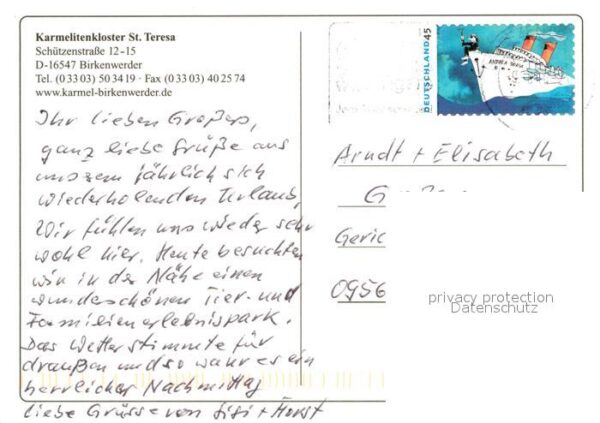 Karmelitenkloster St. Teresa
Schützenstraße 12-15
D-16547 Birkenwerder
Tel. (0 33 03) 50 34 19 · Fax (0 33 03) 40 25 74
www.karmel-birkenwerder.de
Ihr lieben Großen,
ganz liebe Grüße aus
unserem jährlich sich
wiederholenden Urlaub,
Wir fühlen uns wieder sehr
wohl hier. Heute besuchten
wir in der Nähe einen
wunderschönen Tier- und
Familienerlebnispark.
Das Wetter stimmte für
draußen und so wahr es ein
herrlicher Nachmittag
liebe Grüsse von Sigi + Horst
DEUTSCHLAND 45
ANDREA DORIA
Arndt + Elisabeth
G
Geric
0956
privacy protection
Datenschutz